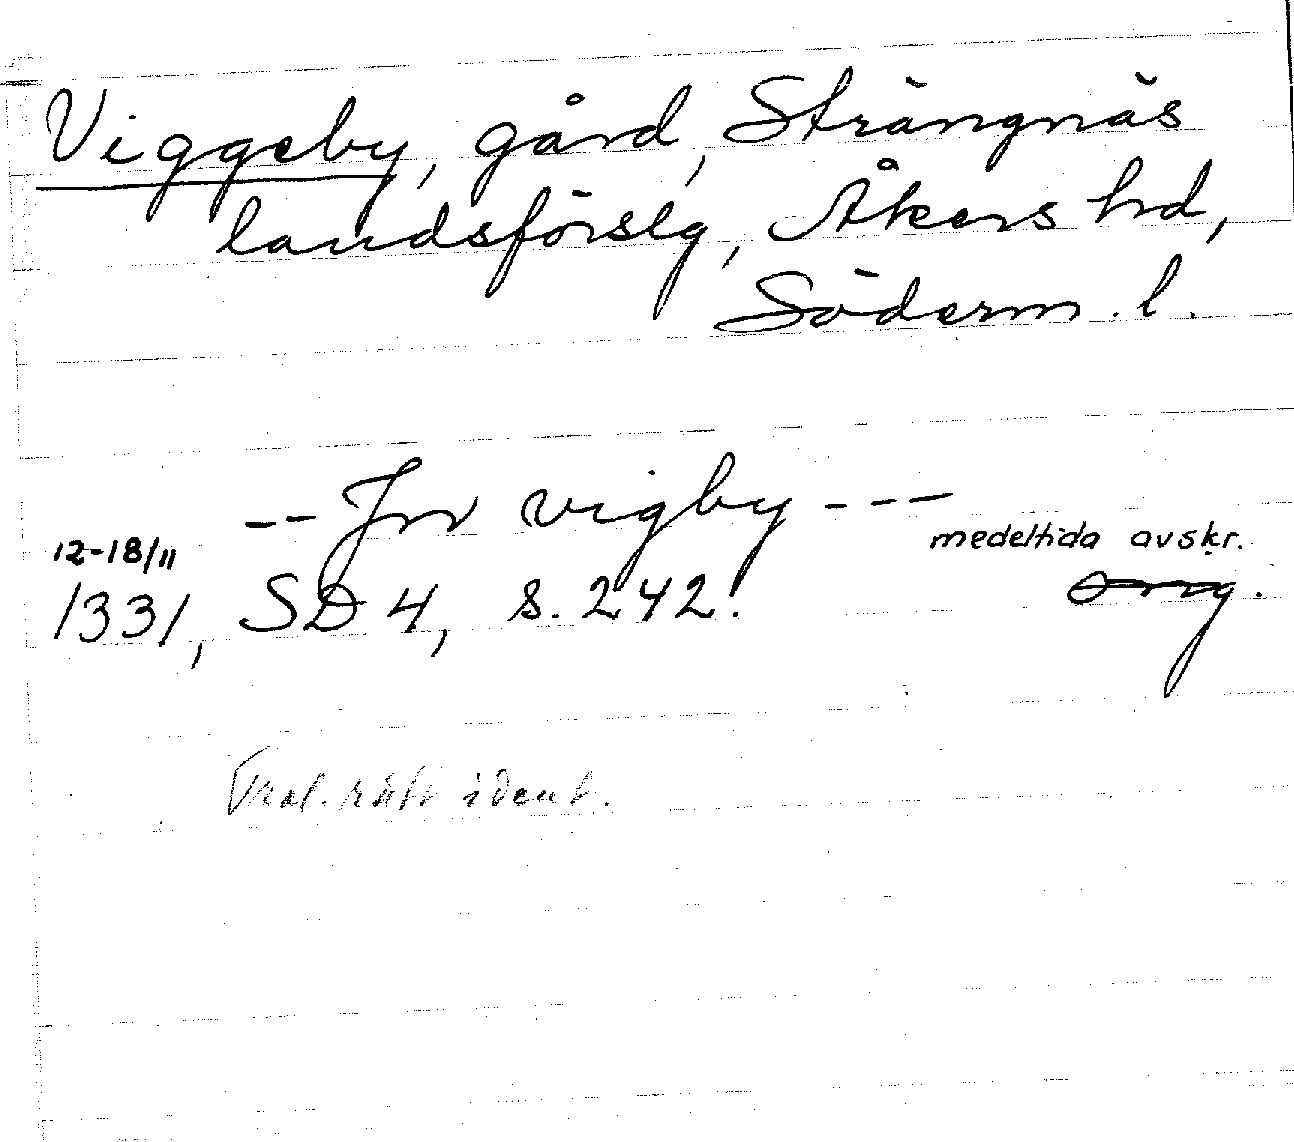 Viggeby, gård, Strängnäs
landsförslg, Åkers hd,
Söderm. l.
-- Jn vigby ---
12-18/11 medeltida avskr.
1331, SD 4, s. 242. orig.
Trol. rätt ident.